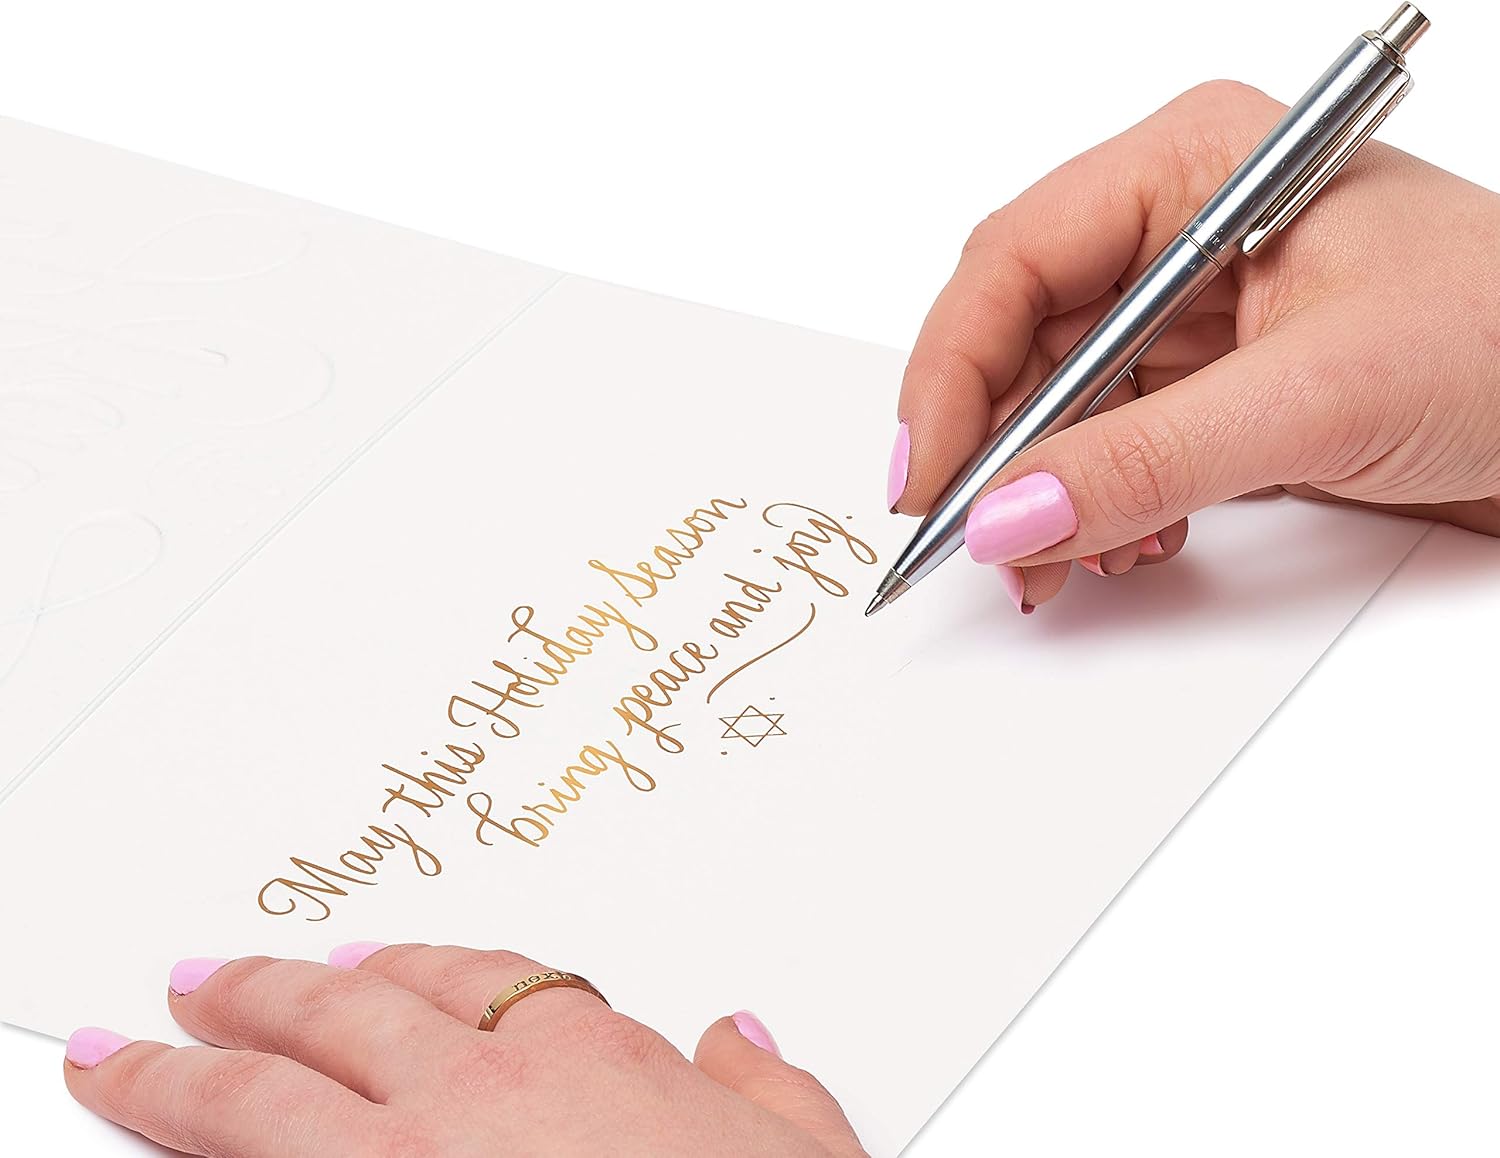 May this Holiday Season
bring peace and joy.